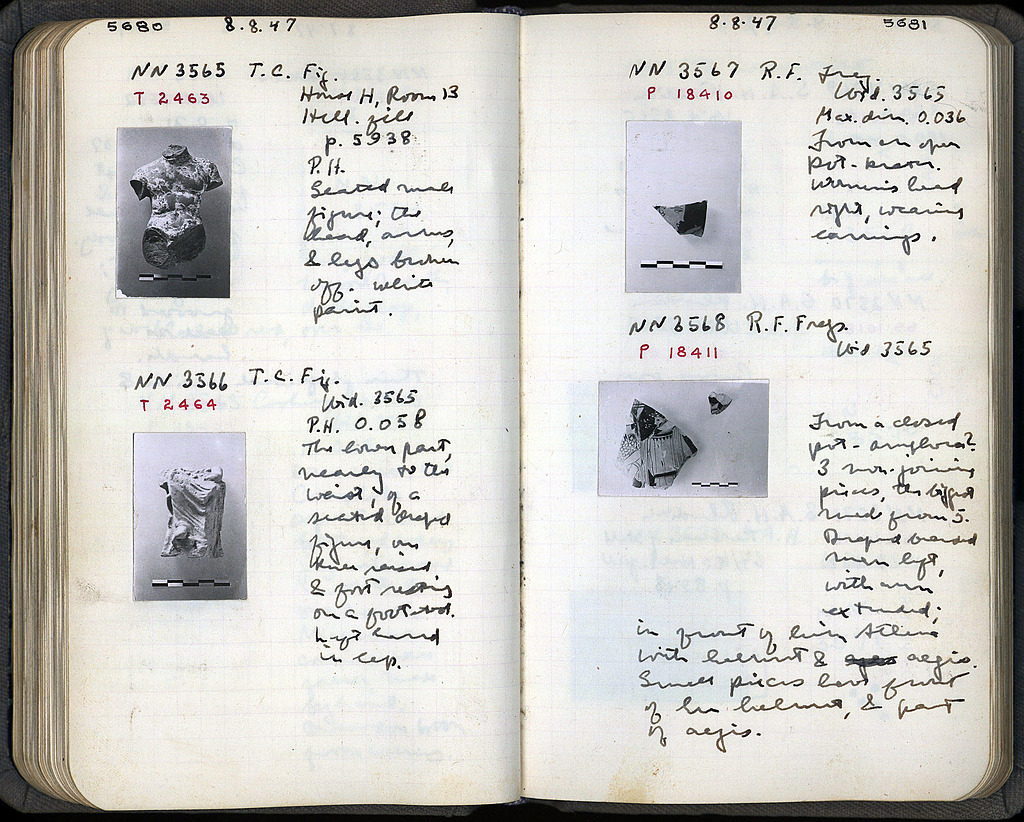 5680 8.8.47
NN 3565 T.C. Fig.
T 2463
House H, Room 13
Hell. fill
p. 5938
P.H.
Seated male
figure; the
head, arms,
& legs broken
off. white
paint.
NN 3566 T.C. Fig.
T 2464
Ibid. 3565
P.H. 0.058
The lower part,
nearly to the
waist, of a
seated draped
figure, one
knee raised
& foot resting
on a footstool.
Left hand
in lap.
8.8.47 5681
NN 3567 R.F. Frag.
P 18410
Ibid. 3565
Max. dim. 0.036
From an open
pot - krater.
Woman's head
right, wearing
earrings.
NN 3568 R.F. Frags.
P 18411
Ibid 3565
From a closed
pot - amphora?
3 non-joining
pieces, the biggest
mended from 5.
Draped bearded
man left,
with arm
extended;
in front of him Athena
with helmet & aegis.
Small pieces have front
of her helmet, & part
of aegis.